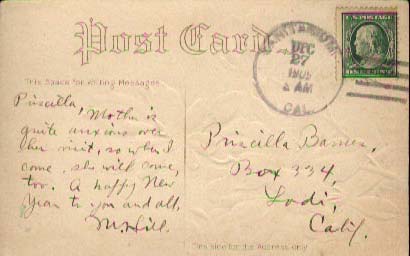 Post Card
This Space for Writing Messages
Priscilla,
Mother is
quite anxious over
her visit, so when I
come, she will come,
too. A happy New
Year to you and all,
M. Hill.
DEC
27
1909
AM
CAL.
U.S. POSTAGE
Priscilla Barnes,
Box 334,
Lodi,
Calif.
This side for the Address only